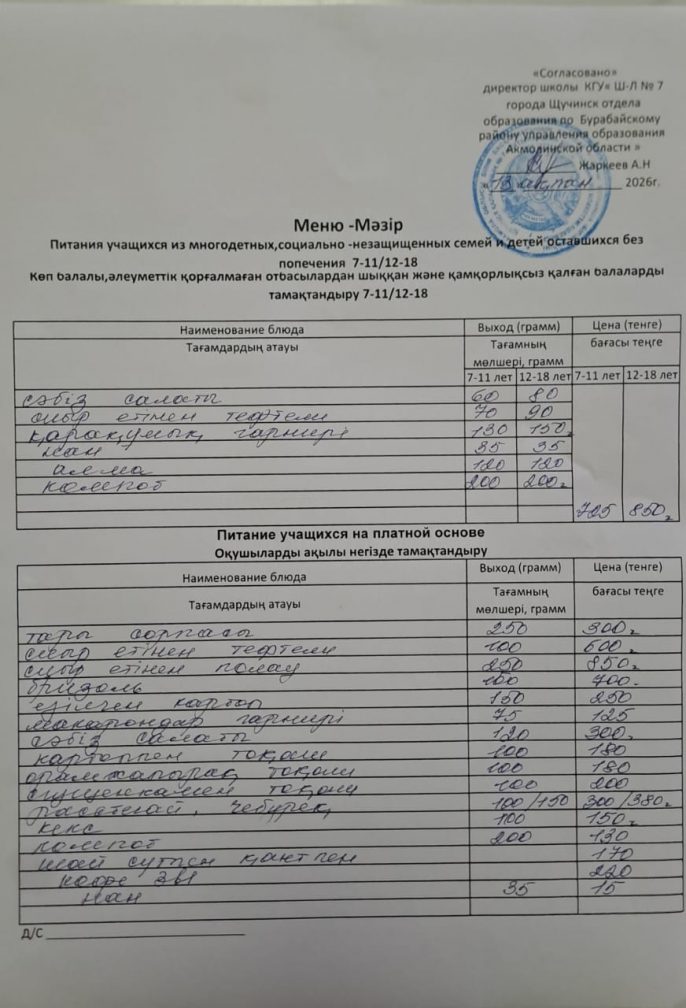 «Согласовано»
директор школы КГУ« Ш-Л № 7
города Щучинск отдела
образования по Бурабайскому
району управления образования
Акмолинской области »
Жаркеев А.Н
« 13 » ақпан 2026г.
Меню -Мәзір
Питания учащихся из многодетных,социально -незащищенных семей и детей оставшихся без
попечения 7-11/12-18
Көп балалы,әлеуметтік қорғалмаған отбасылардан шыққан және қамқорлықсыз қалған балаларды
тамақтандыру 7-11/12-18
Наименование блюда Выход (грамм) Цена (тенге)
Тағамдардың атауы Тағамның мөлшері, грамм бағасы теңге
7-11 лет 12-18 лет 7-11 лет 12-18 лет
сәбіз салаты 60 80
сиыр етінен тефтели 70 90
қарақұмық гарнирі 130 150г
нан 35 35
алма 120 120
компот 200 200г
725 850г
Питание учащихся на платной основе
Оқушыларды ақылы негізде тамақтандыру
Наименование блюда Выход (грамм) Цена (тенге)
Тағамдардың атауы Тағамның мөлшері, грамм бағасы теңге
тары сорпасы 250 300г
сиыр етінен тефтели 100 600г
сиыр етінен полау 250 850г
бризоль 100 700.
езілген картоп 150 250
макарондар гарнирі 75 125
сәбіз салаты 120 300.
картоппен тоқаш 100 180
орамжапырақ тоқаш 100 180
сгущенкамен тоқаш 100 200
чебурек 100/150 300/380г
кекс 100 150г
компот 200 130
шай сутпен қантпен 170
кофе 3в1 220
нан 35 15
Д/С